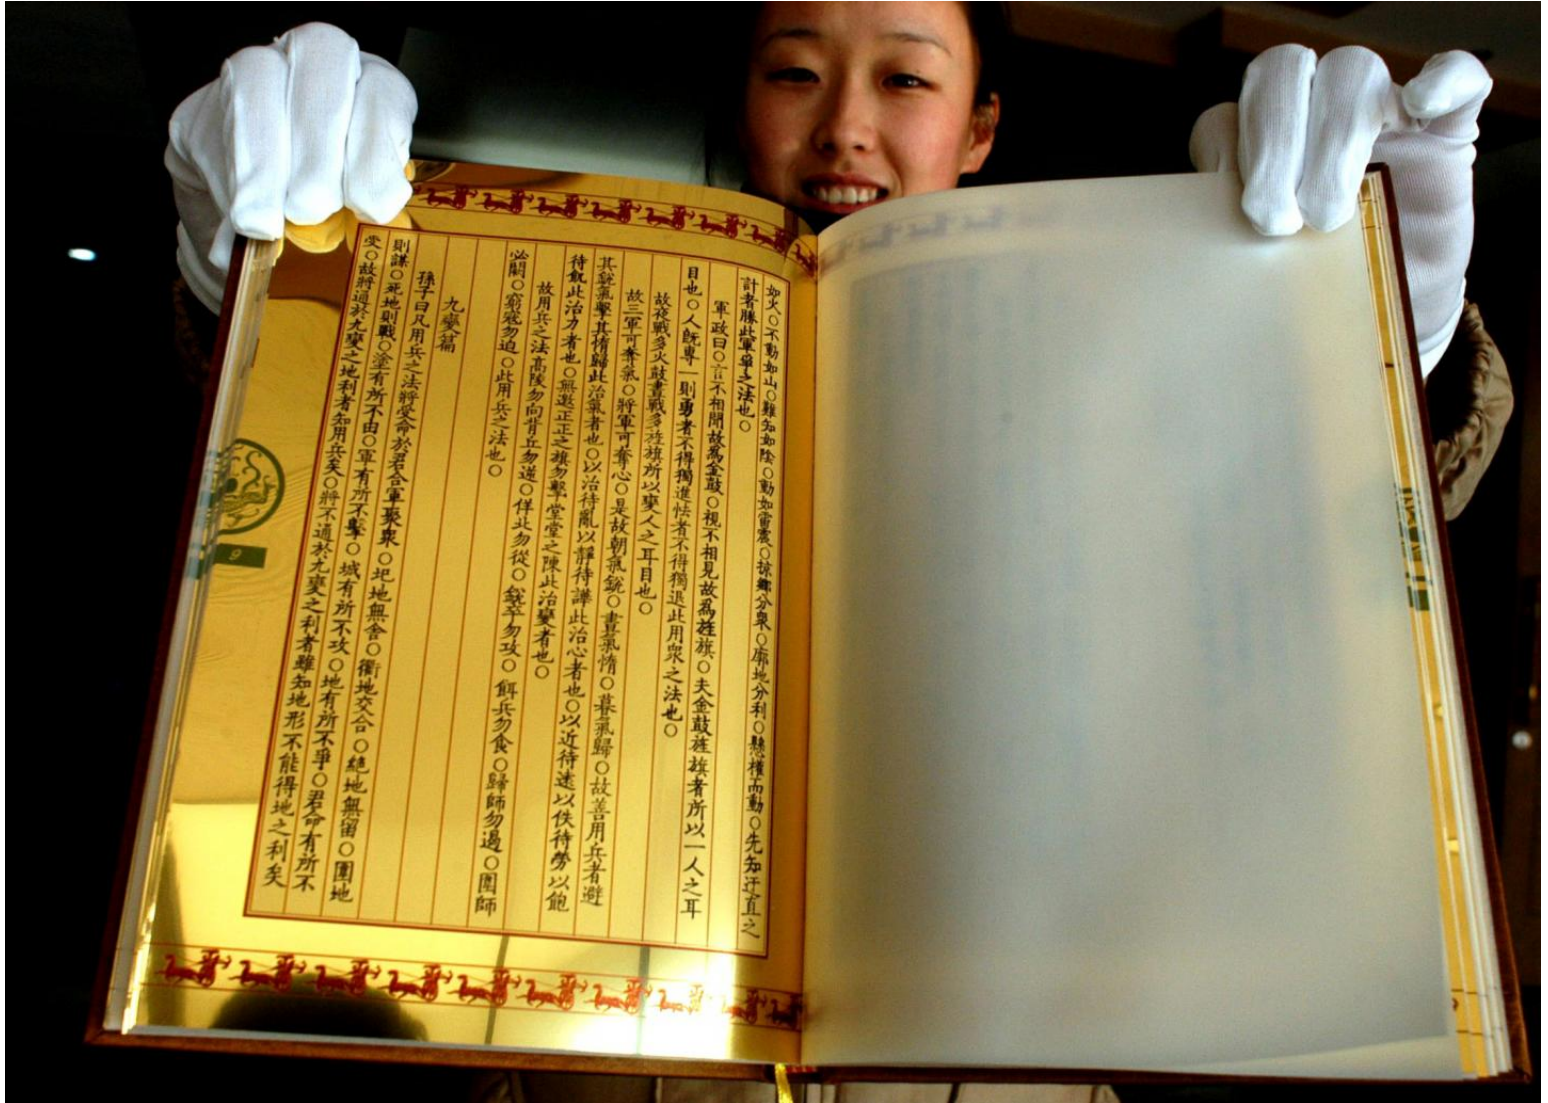 如火○不動如山○難知如陰○動如雷震○掠鄉分衆○廓地分利○懸權而動○先知迂直之
計者勝此軍爭之法也○
軍政曰○言不相聞故為金鼓○視不相見故為旌旗○夫金鼓旌旗者所以一人之耳
目也○人旣專一則勇者不得獨進怯者不得獨退此用衆之法也○
故夜戰多火鼓晝戰多旌旗所以變人之耳目也○
故三軍可奪氣○將軍可奪心○是故朝氣銳○晝氣惰○暮氣歸○故善用兵者避
其銳氣擊其惰歸此治氣者也○以治待亂以靜待譁此治心者也○以近待遠以佚待勞以飽
待飢此治力者也○無邀正正之旗勿擊堂堂之陳此治變者也○
故用兵之法高陵勿向背丘勿逆○佯北勿從○銳卒勿攻○餌兵勿食○歸師勿遏○圍師
必闕○窮寇勿迫○此用兵之法也○
九變篇
孫子曰凡用兵之法將受命於君合軍聚衆○圮地無舍○衢地交合○絕地無留○圍地
則謀○死地則戰○塗有所不由○軍有所不擊○城有所不攻○地有所不爭○君命有所不
受○故將通於九變之地利者知用兵矣○將不通於九變之利者雖知地形不能得地之利矣
9